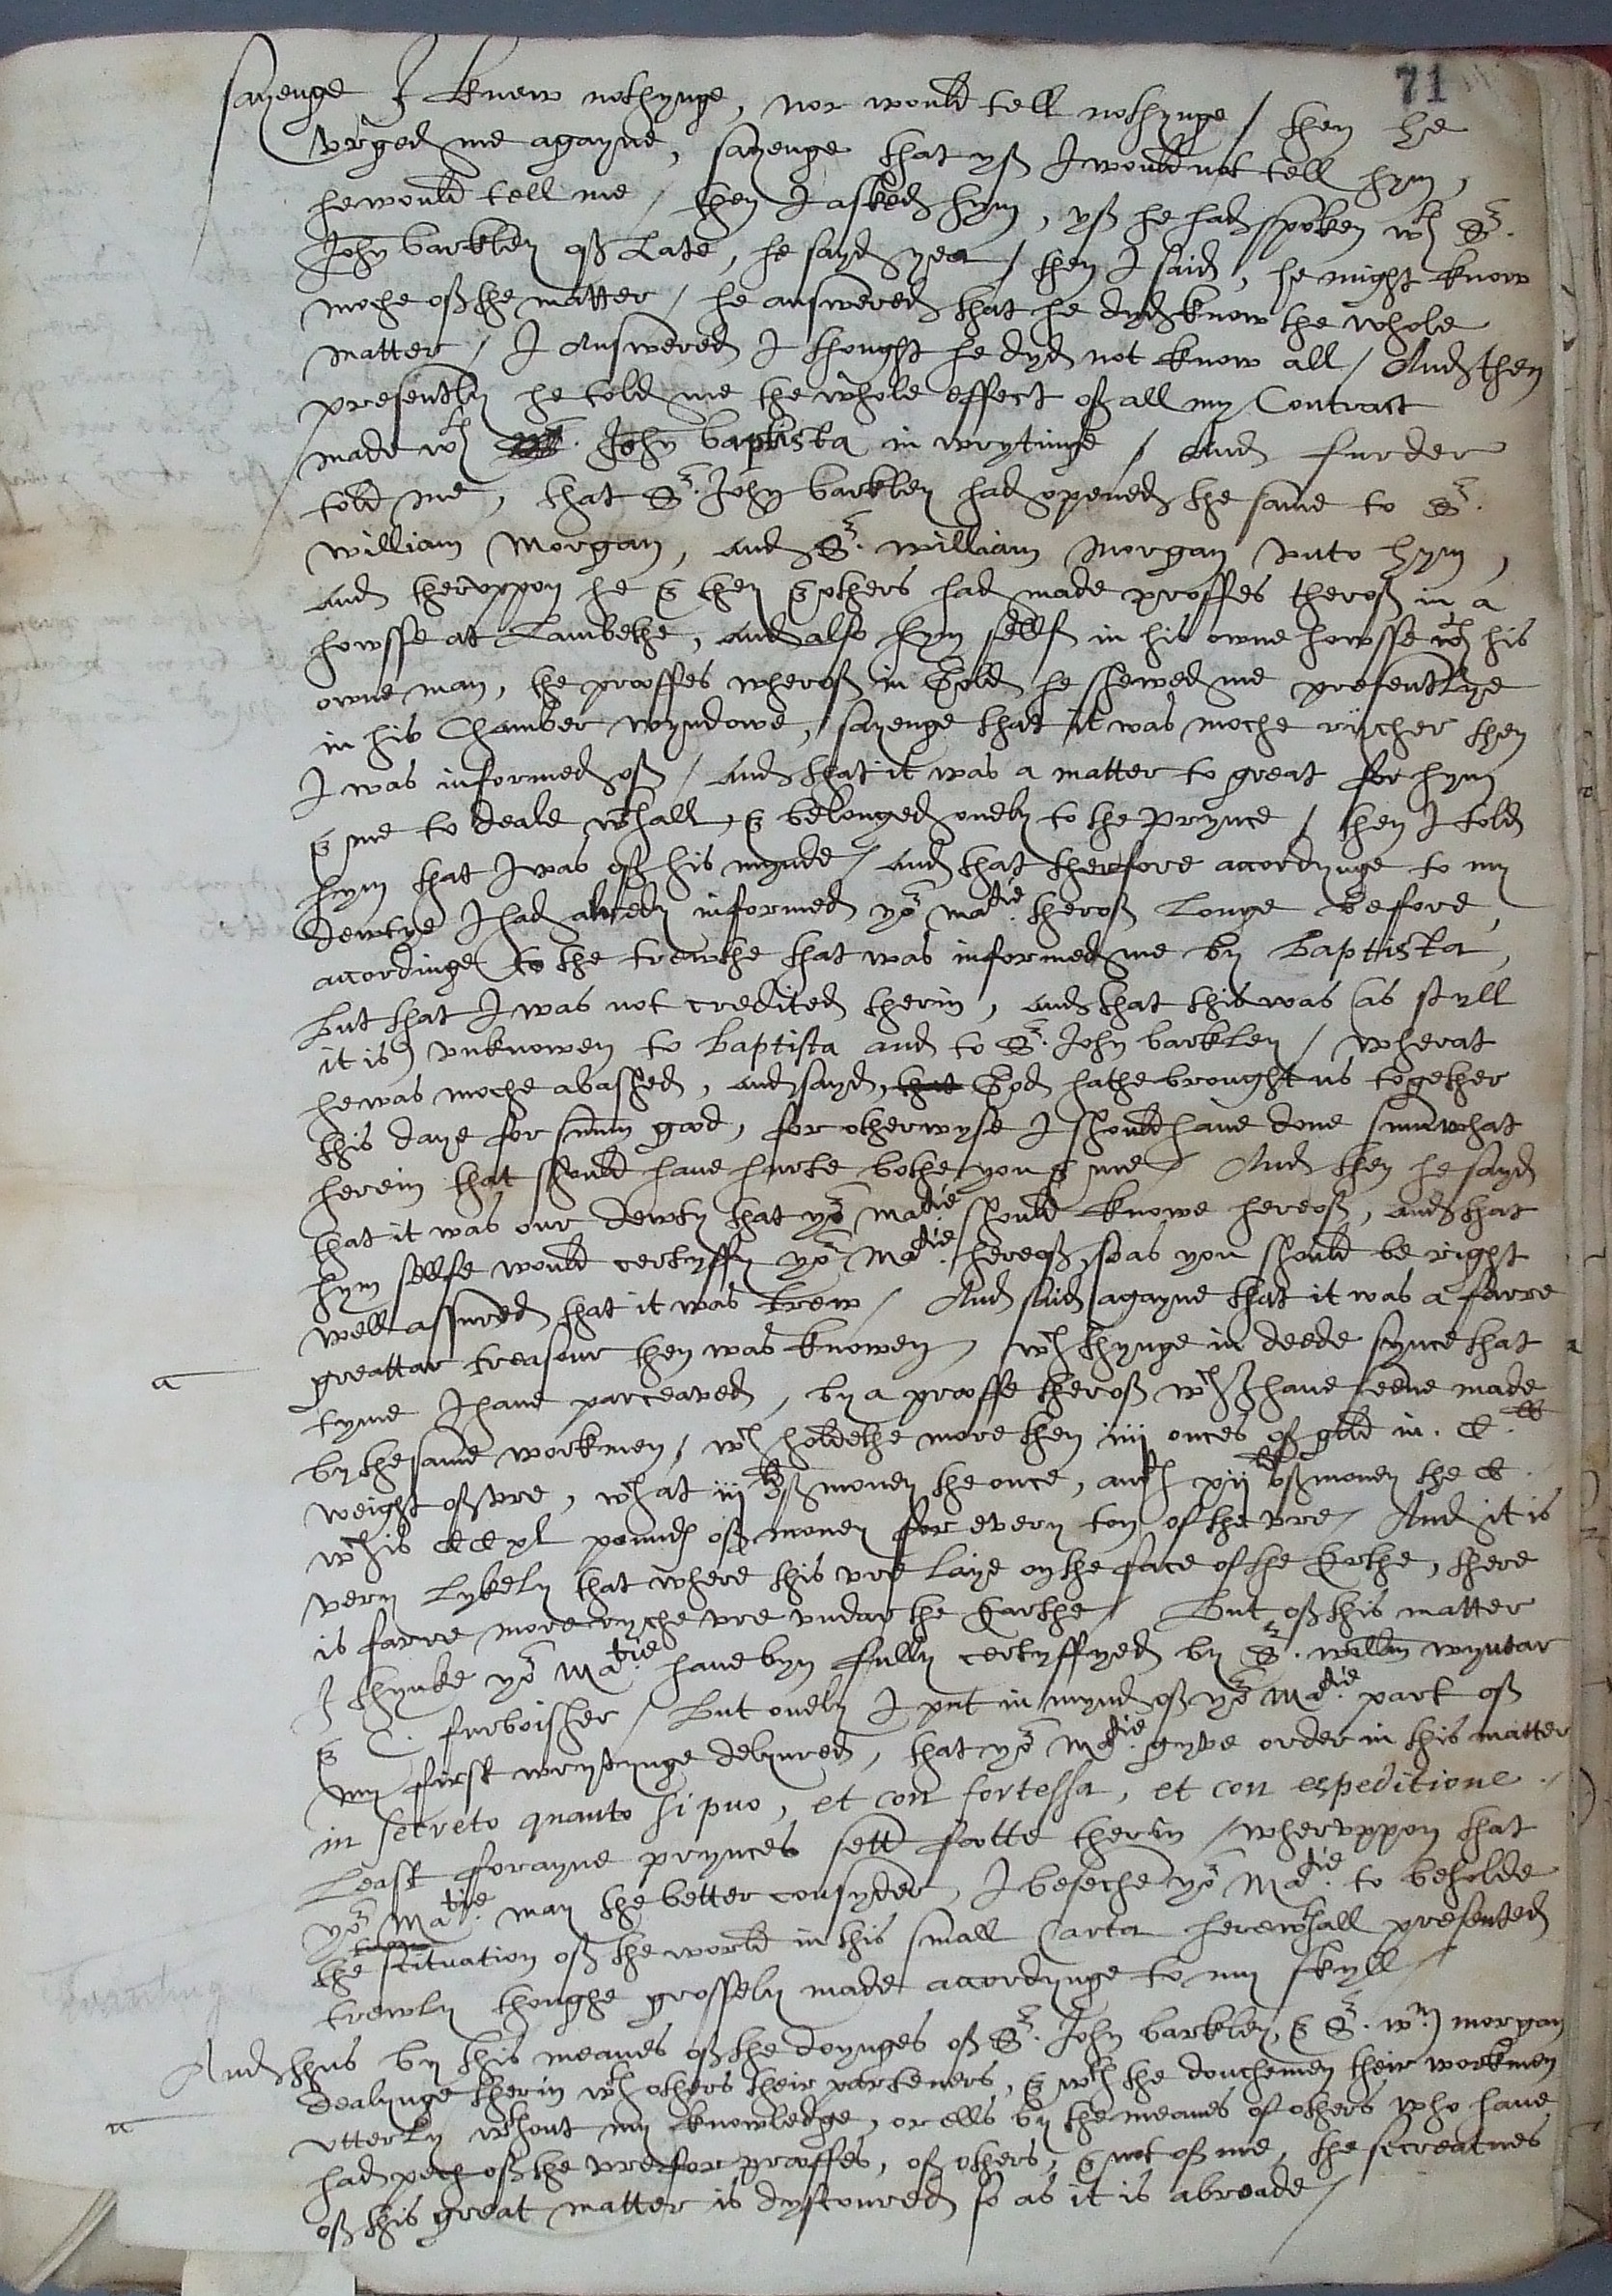 71
sayenge I knew nothynge, nor would tell nothynge / then he
vrged me agayne, sayenge that yf I would not tell hym,
he would tell me / then I asked hym, yf he had spoken wth Sr.
John barkley of Late, he sayd yea / then I said, he might know
moche of the matter / he answered that he dyd know the whole
matter / I Answered I thought he dyd not know all / And then
presently he told me the whole effect of all my Contract
made wth John baptista in wrytinge / And furder
told me, that Sr. John barkley had opened the same to Sr.
William Morgan, and Sr. William Morgan vnto hym,
and thervppon he & they & others had made proffes therof in a
howsse at Lambethe, and also hym sellf in his owne howsse wth his
owne man, the prooffes wherof in Gold he shewed me presentlye
in his Chamber wyndowe, sayenge that it was moche rycher then
I was informed of / And that it was a matter to great for hym
& me to deale wthall, & belonged onely to the Prynce / then I told
hym that I was of his mynde / And that therfore accordynge to my
dewtye I had alredy informed yor Matie. therof Longe beffore,
accordinge to the trewthe that was informed me by Baptista,
But that I was not credited therin, and that this was (as styll
it is) vnknowen to Baptista and to Sr. John barkley / wherat
he was moche abashed, and sayd, that God hathe brought us together
this daye for summ good, for otherwyse I should haue done sumwhat
herein that should haue hurte bothe you & me / And then he sayd
that it was our dewty that yor Matie should knowe hereof, and that
hym sellfe would certyffy yor Matie. hereof, so as you should be right
well assured that it was trew / And said agayne that it was a farre
greattar treasour then was knowen, wch thynge in deede synce that
a
tyme I haue parceaved, by a prooffe therof wch I haue seene made
by the same workmen, wch holdethe more then iiij onces of gold in. C.
weight of vre, wch at iij li of money the once, ar xij li of money the C.
wch is CCxl pownd of money for every ton of the vre / And it is
very Lykely that where this vre laye on the face of the Earthe, there
is farre more ryche vre vndar the Earthe / But of this matter
I thynke yor Matie. haue byn fully certyffyed by Sr. Willm Wyntar
& C. furboisher / But onely I put in mynd of yor Matie. part of
my first wrytynge delyured, that yor Matie. gyve order in this matter
in secreto quanto si puo, et con fortessa, et con espeditione /
Least forayne prynces sett footte therin / wheruppon that
yor Matie. may the better consyder, I beseche yor Matie. to beholde
the stituation of the world in this small Carta herewthall presented
trewly thoughe grossely made accordynge to my skyll /
And thus by this meanes of the doynges of Sr. John barkley, & Sr. Wm morgan
dealynge therin wth others their parteners, & wth the douchemen their workmen
a
vtterly wthout my knowledge, or ells by the meanes of others who haue
had peces of the vre for prooffes, of others, & not of me, the secreatnes
of this great matter is dyscoured so as it is abroade /